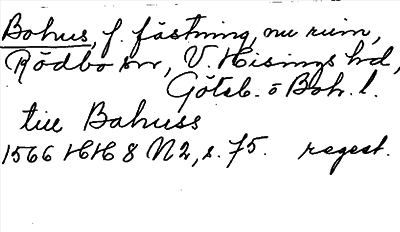 Bohus, f. fästning, nu ruin,
Rödbo sn, V. Hisings hd,
Göteb. o Boh. l.
till Bahuss
1566 HH 8 N2, s. 75. regest.